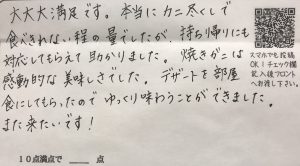 大大大満足です。本当にカニ尽くしで
食べきれない程の量でしたが、持ち帰りにも
対応してもらえて助かりました。焼きがには
感動的な美味しさでした。デザートを部屋
食にしてもらったのでゆっくり味わうことができました。
また来たいです！
スマホでも投稿
OK！チェック欄
記入後フロント
へお渡し下さい。
10点満点で ＿＿ 点